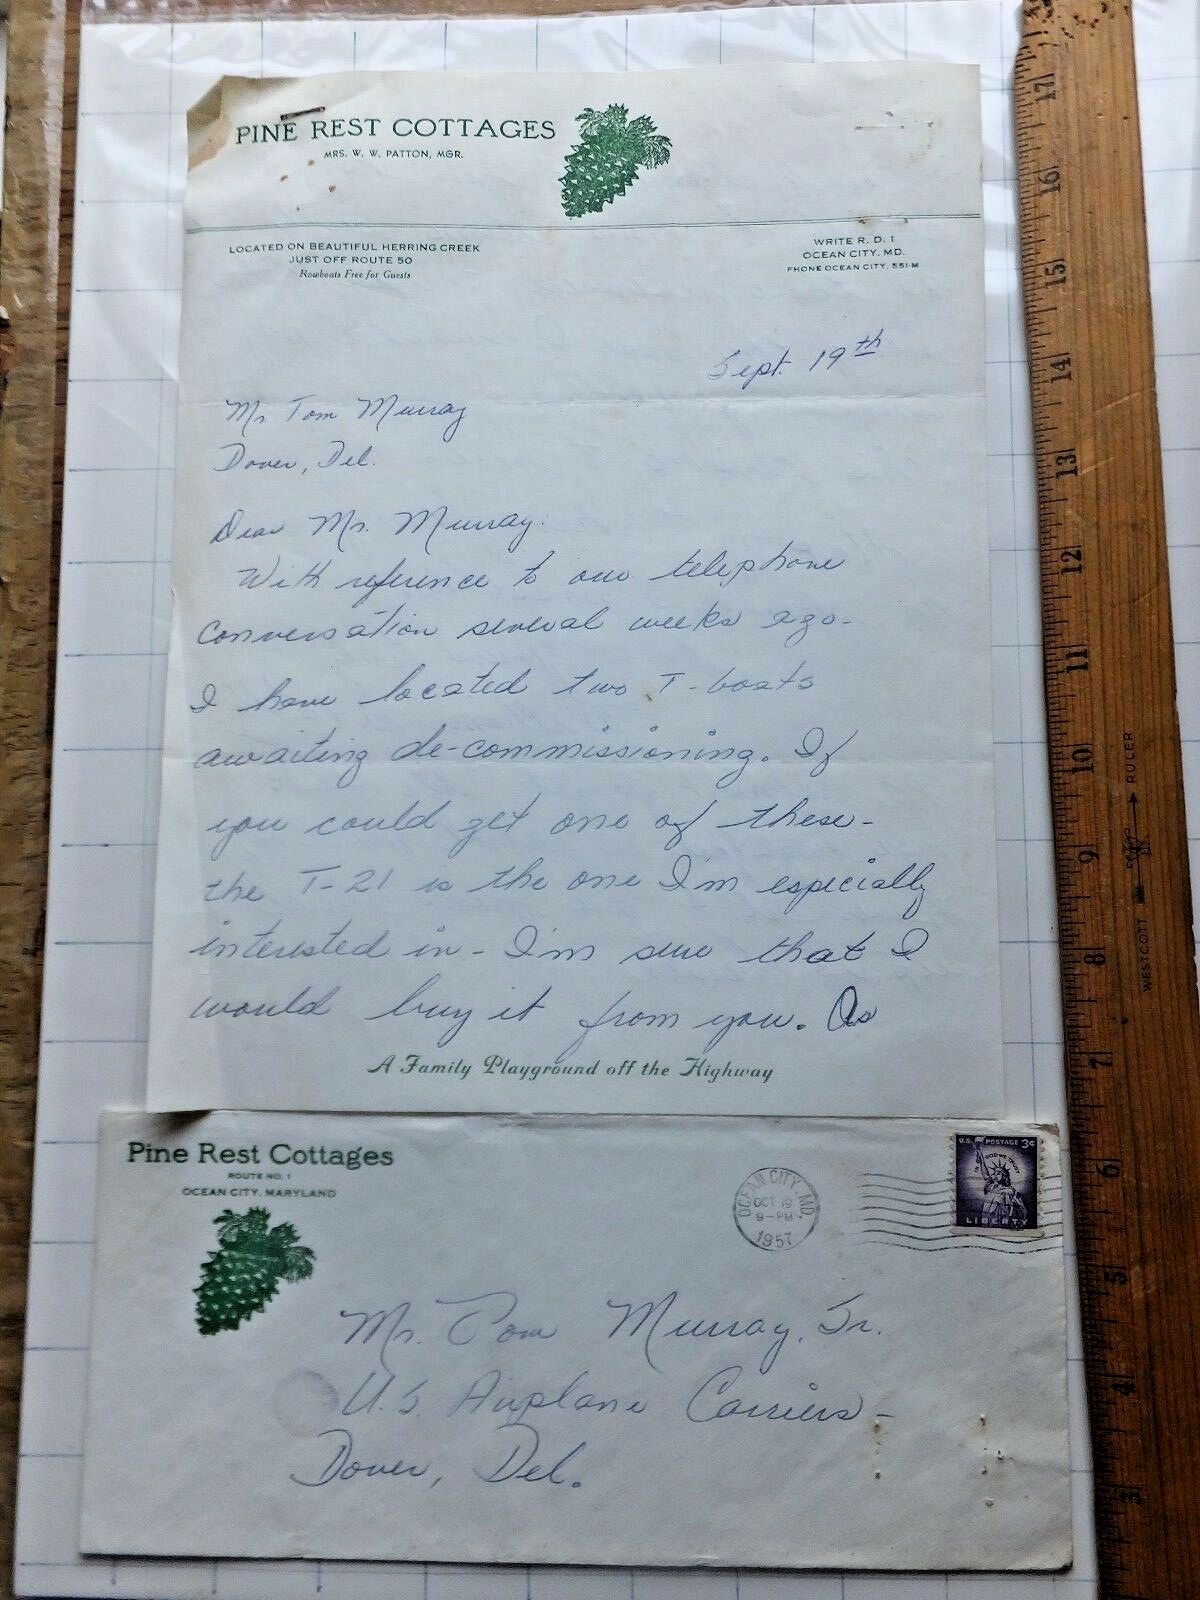 PINE REST COTTAGES
MRS. W. W. PATTON, MGR.
LOCATED ON BEAUTIFUL HERRING CREEK
JUST OFF ROUTE 50
Rowboats Free for Guests
WRITE R. D. 1
OCEAN CITY, MD.
PHONE OCEAN CITY, 551-M
Sept. 19th
Mr. Tom Murray
Dover, Del.
Dear Mr. Murray:
With reference to our telephone
conversation several weeks ago-
I have located two T-boats
awaiting de-commissioning. If
you could get one of these-
the T-21 is the one I'm especially
interested in - I'm sure that I
would buy it from you. As
A Family Playground off the Highway
Pine Rest Cottages
ROUTE NO. 1
OCEAN CITY, MARYLAND
OCEAN CITY, MD.
OCT 19
9-PM
1957
U.S. POSTAGE 3¢
IN GOD WE TRUST
LIBERTY
Mr. Tom Murray, Jr.
U.S. Airplane Carriers-
Dover, Del.
17
16
15
14
13
12
11
10
9
8
7
6
5
4
3
WESTCOTT RULER